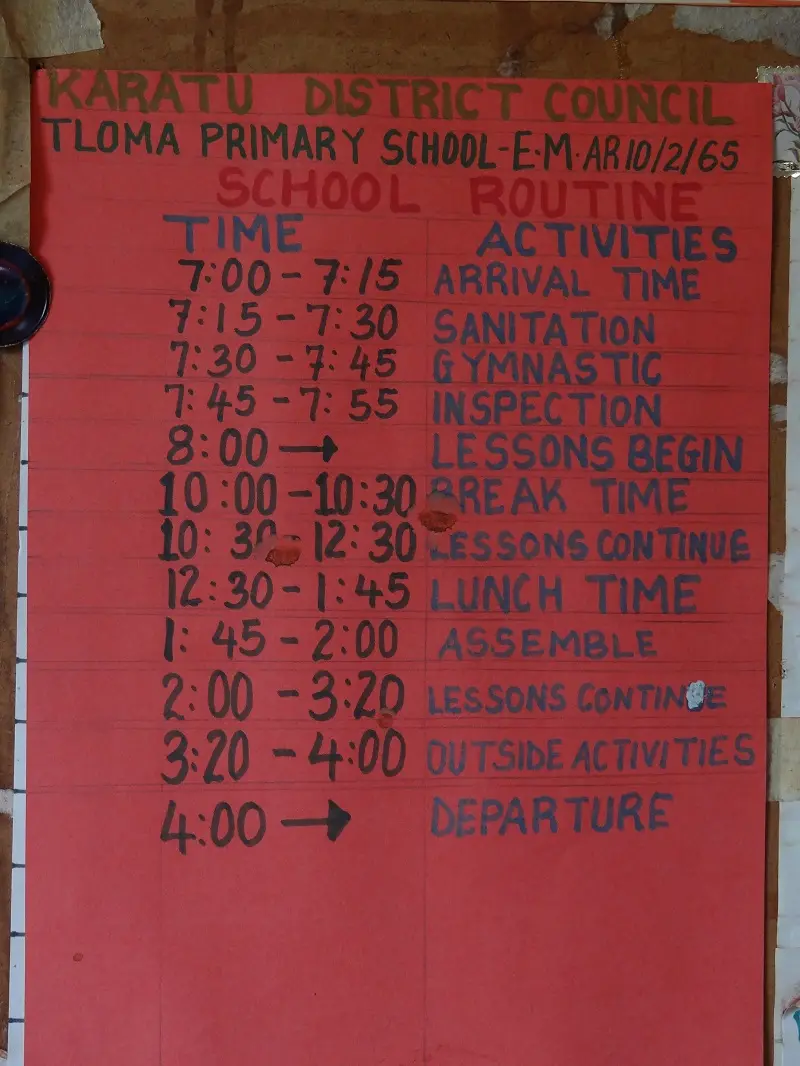 KARATU DISTRICT COUNCIL
TLOMA PRIMARY SCHOOL-E.M.AR10/2/65
SCHOOL ROUTINE
TIME ACTIVITIES
7:00 - 7:15 ARRIVAL TIME
7:15 - 7:30 SANITATION
7:30 - 7:45 GYMNASTIC
7:45 - 7:55 INSPECTION
8:00 → LESSONS BEGIN
10:00 - 10:30 BREAK TIME
10:30 - 12:30 LESSONS CONTINUE
12:30 - 1:45 LUNCH TIME
1:45 - 2:00 ASSEMBLE
2:00 - 3:20 LESSONS CONTINUE
3:20 - 4:00 OUTSIDE ACTIVITIES
4:00 → DEPARTURE